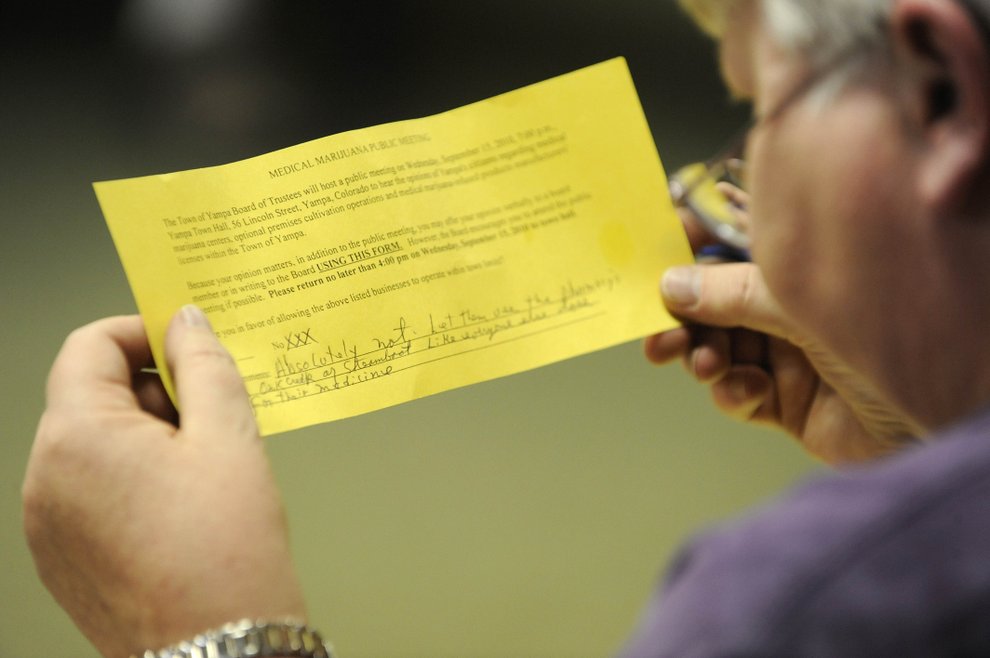 MEDICAL MARIJUANA PUBLIC MEETING
The Town of Yampa Board of Trustees will host a public meeting on Wednesday, September 15, 2010, 7:00 p.m.,
Yampa Town Hall, 56 Lincoln Street, Yampa, Colorado to hear the opinions of Yampa's citizens regarding medical
marijuana centers, optional premises cultivation operations and medical marijuana-infused products manufacturers'
licenses within the Town of Yampa.
Because your opinion matters, in addition to the public meeting, you may offer your opinion verbally to a board
member or in writing to the Board USING THIS FORM. However, the Board encourages you to attend the public
meeting if possible. Please return no later than 4:00 pm on Wednesday, September 15, 2010 to town hall.
you in favor of allowing the above listed businesses to operate within town limits?
No XXX
Absolutely not. Let them use the pharmacy's
Oak Creek or Steamboat Like everyone else does
For their medicine